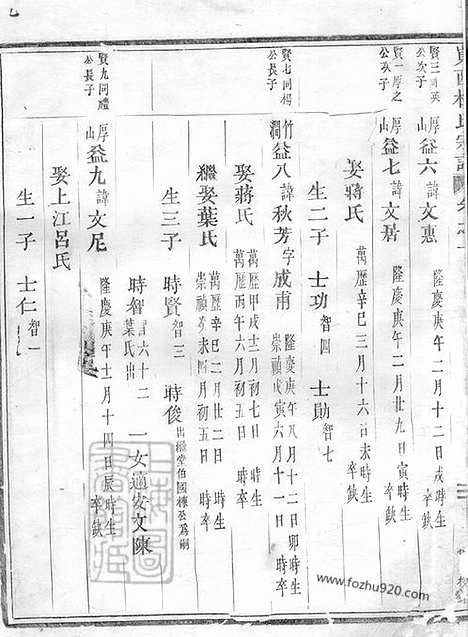 賢三
公次子
厚山 益六 諱文惠 隆慶庚午二月十二日戌時生 卒缺
賢一厚之
公次子
厚山 益七 諱文居 隆慶庚午二月廿九日寅時生 卒缺
娶蔣氏 萬歷辛巳三月十六日未時生 卒缺
生二子 士功 智四 士勛 智七
賢七同楊
公長子
竹澗 益八 諱秋芳 字成甫 隆慶庚午八月十二日卯時生 崇禎戊寅六月十一日 時卒
娶蔣氏 萬歷甲戌十二月初七日 時生 萬歷丙午六月初五日 時卒
繼娶葉氏 萬歷辛巳二月廿二日 時生 崇禎癸未四月初五日 時卒
生三子 時賢 智三 時俊 出繼堂伯國棟公為嗣
時智 言六十二 葉氏出 一女適安文陳
賢九同禮
公長子
厚山 益九 諱文尼 隆慶庚午十一月十四日辰時生 卒缺
娶上江呂氏
生一子 士仁 智一
www.fozhu920.com